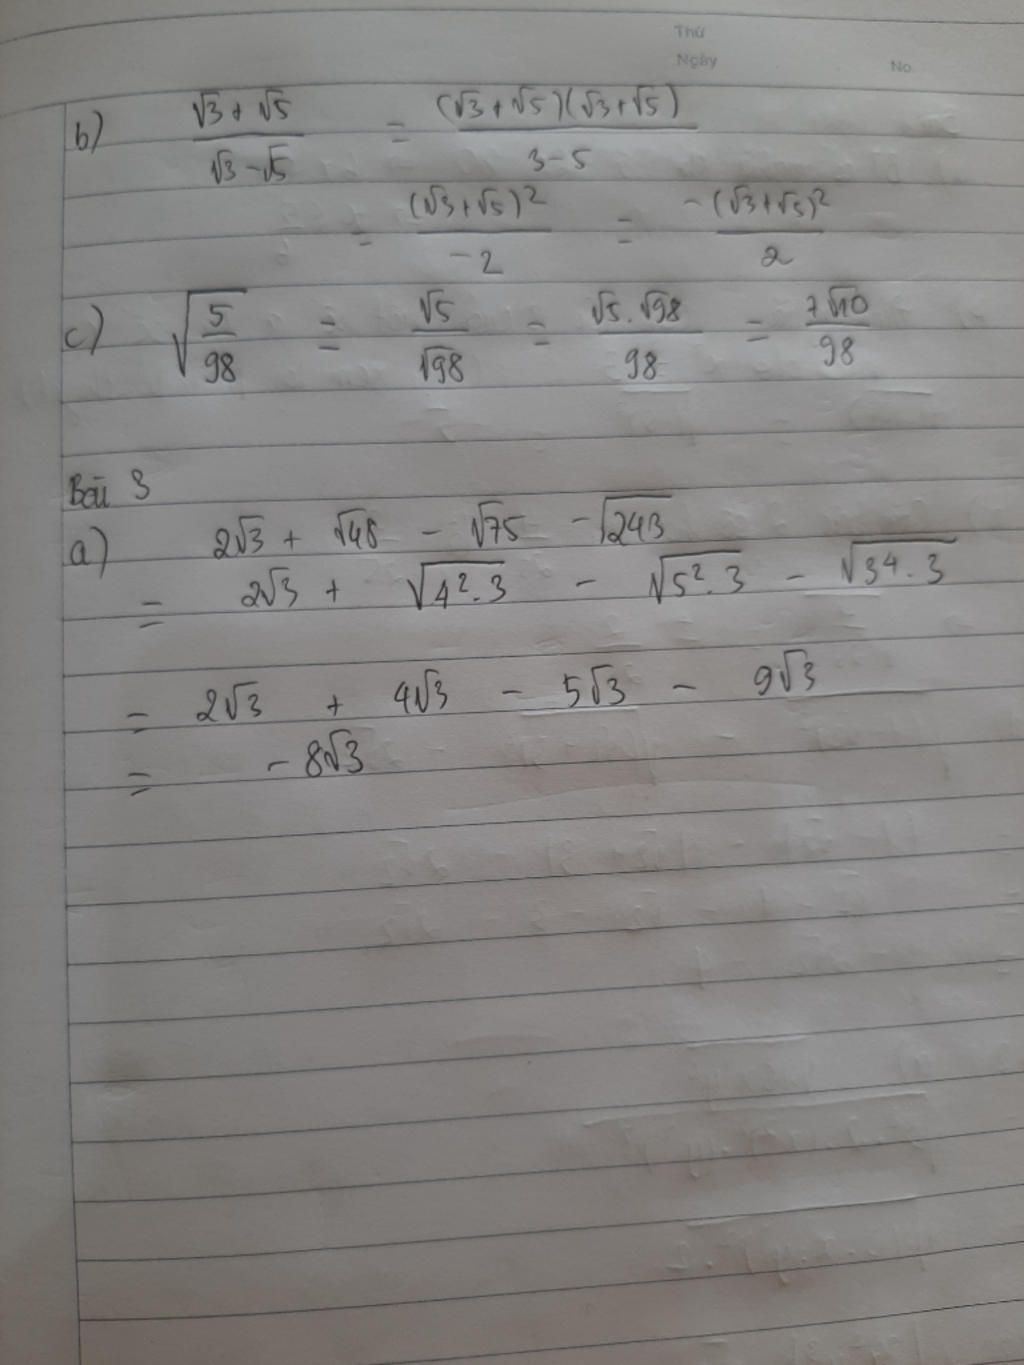 Thứ
Ngày No.
b) (√3 + √5)/(√3 - √5) = ((√3 + √5)(√3 + √5))/(3 - 5)
= (√3 + √5)²/(-2) = -(√3 + √5)²/2
c) √(5/98) = √5/√98 = (√5 . √98)/98 = 7√10/98
Bài 3
a) 2√3 + √48 - √75 - √243
= 2√3 + √(4² . 3) - √(5² . 3) - √(3⁴ . 3)
= 2√3 + 4√3 - 5√3 - 9√3
= - 8√3